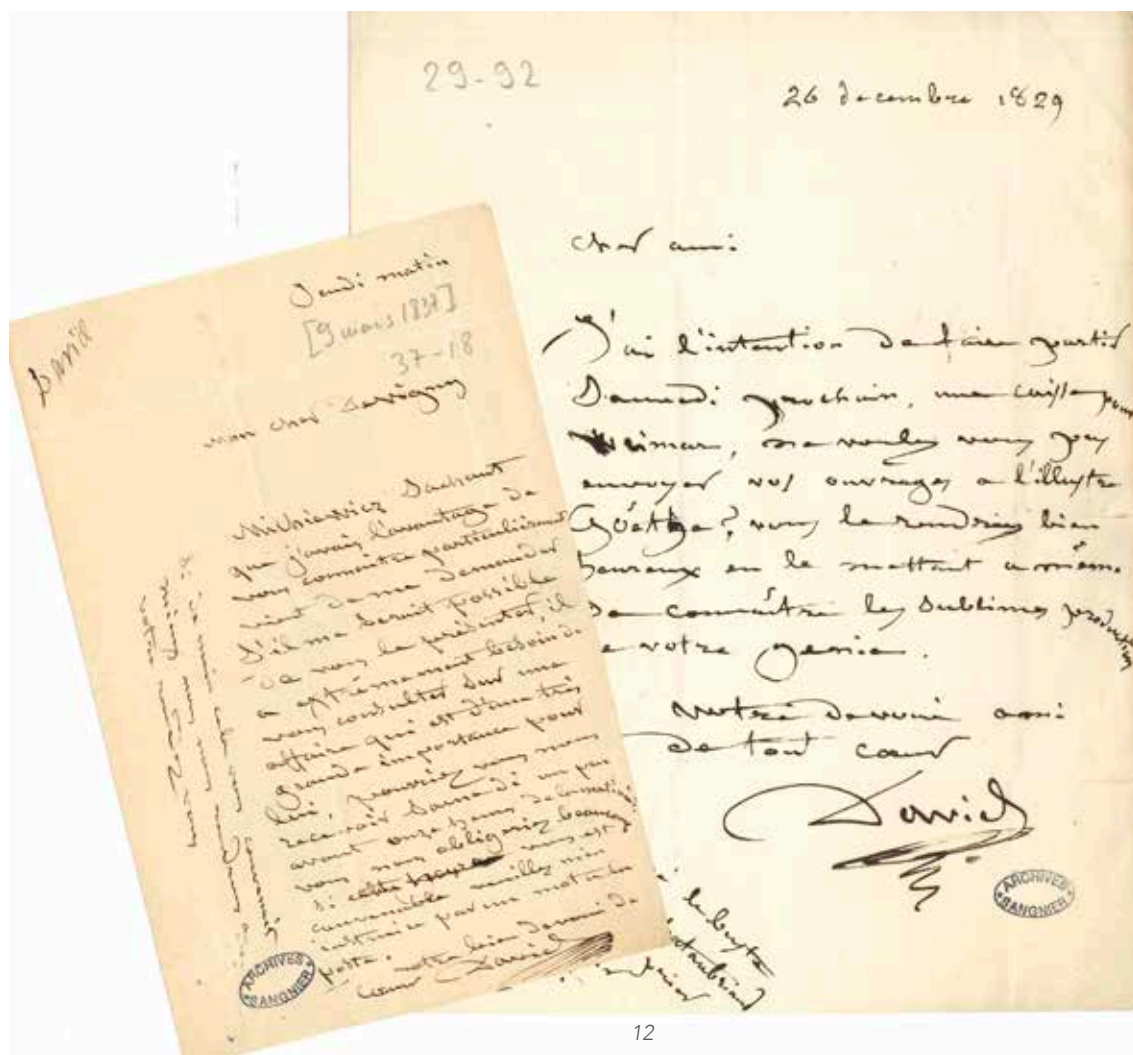 29-92
26 decembre 1829
cher ami
J'ai l'intention de faire partir
Samedi prochain, une caisse pour
Weimar, ne voulez vous pas
envoyer vos ouvrages a l'illustre
Goëthe? vous le rendriez bien
heureux en le mettant a même
de connaître les sublimes production
de votre genie.
Votre devoué ami
de tout cœur
David
ARCHIVES
SANGNIER
le buste
David
Jeudi matin
[9 mars 1837]
37-18
mon cher Devigny
Mickiewicz Sachant
que j'avais l'avantage de
vous connaitre particulièrement
vient de me demander
S'il me serait possible
de vous le présenter, il
a extrêmement besoin de
vous consulter sur une
affaire qui est d'une très
grande importance pour
lui, pourriez vous nous
recevoir Samedi un peu
avant onze heures de la matinée
vous nous obligeriez beaucoup
Si vous est
convenable veuillez m'en
instruire par un mot a la
poste.
votre bien devoué de
cœur David
ARCHIVES
SANGNIER
12